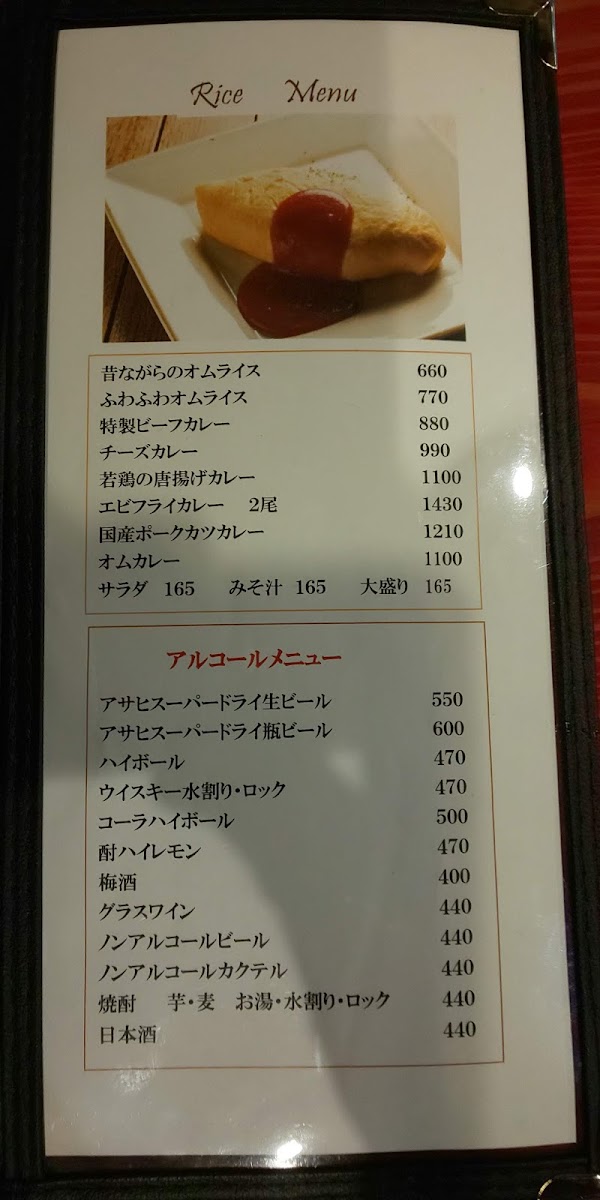 Rice Menu
昔ながらのオムライス 660
ふわふわオムライス 770
特製ビーフカレー 880
チーズカレー 990
若鶏の唐揚げカレー 1100
エビフライカレー 2尾 1430
国産ポークカツカレー 1210
オムカレー 1100
サラダ 165 みそ汁 165 大盛り 165
アルコールメニュー
アサヒスーパードライ生ビール 550
アサヒスーパードライ瓶ビール 600
ハイボール 470
ウイスキー水割り・ロック 470
コーラハイボール 500
酎ハイレモン 470
梅酒 400
グラスワイン 440
ノンアルコールビール 440
ノンアルコールカクテル 440
焼酎 芋・麦 お湯・水割り・ロック 440
日本酒 440